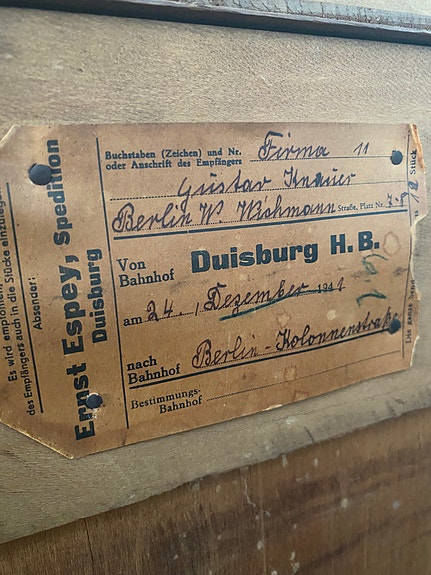 Es wird empfohlen
des Empfängers auch in die Stücke einzulegen
Absender:
Ernst Espey, Spedition
Duisburg
Buchstaben (Zeichen) und Nr.
oder Anschrift des Empfängers
Firma 11
Gustav Knauer
Berlin W. Wichmann Straße, Platz Nr. 7-9
Von
Bahnhof
Duisburg H. B.
am 24. Dezember 1941
nach
Bahnhof
Berlin-Kolonnenstraße
Bestimmungs-
Bahnhof
Stück
Die ganze